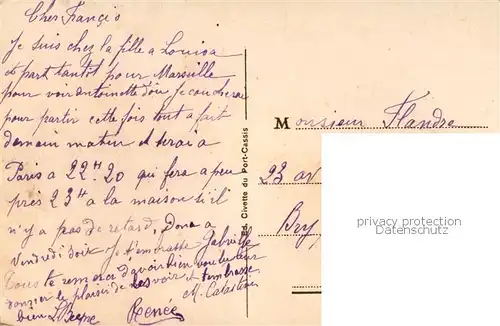 Cher Françis
Je suis chez la fille a Louisa
et part tantot pour Marseille
pour voir antoinette d'ou je coucherai
pour partir cette fois tout a fait
demain matin et serai a
Paris a 22H20 qui fera a peu
près 23H a la maison s'il
n'y a pas de retard, Donc a
Vendredi soir Je t'embrasse
Tous te remercie d'avoir bien voulu leur
donner le plaisir de les voir et t'embrasse
bien Renée M.
Ed. Civette du Port-Cassis
Monsieur Flandre
23 av
Bry
privacy protection
Service